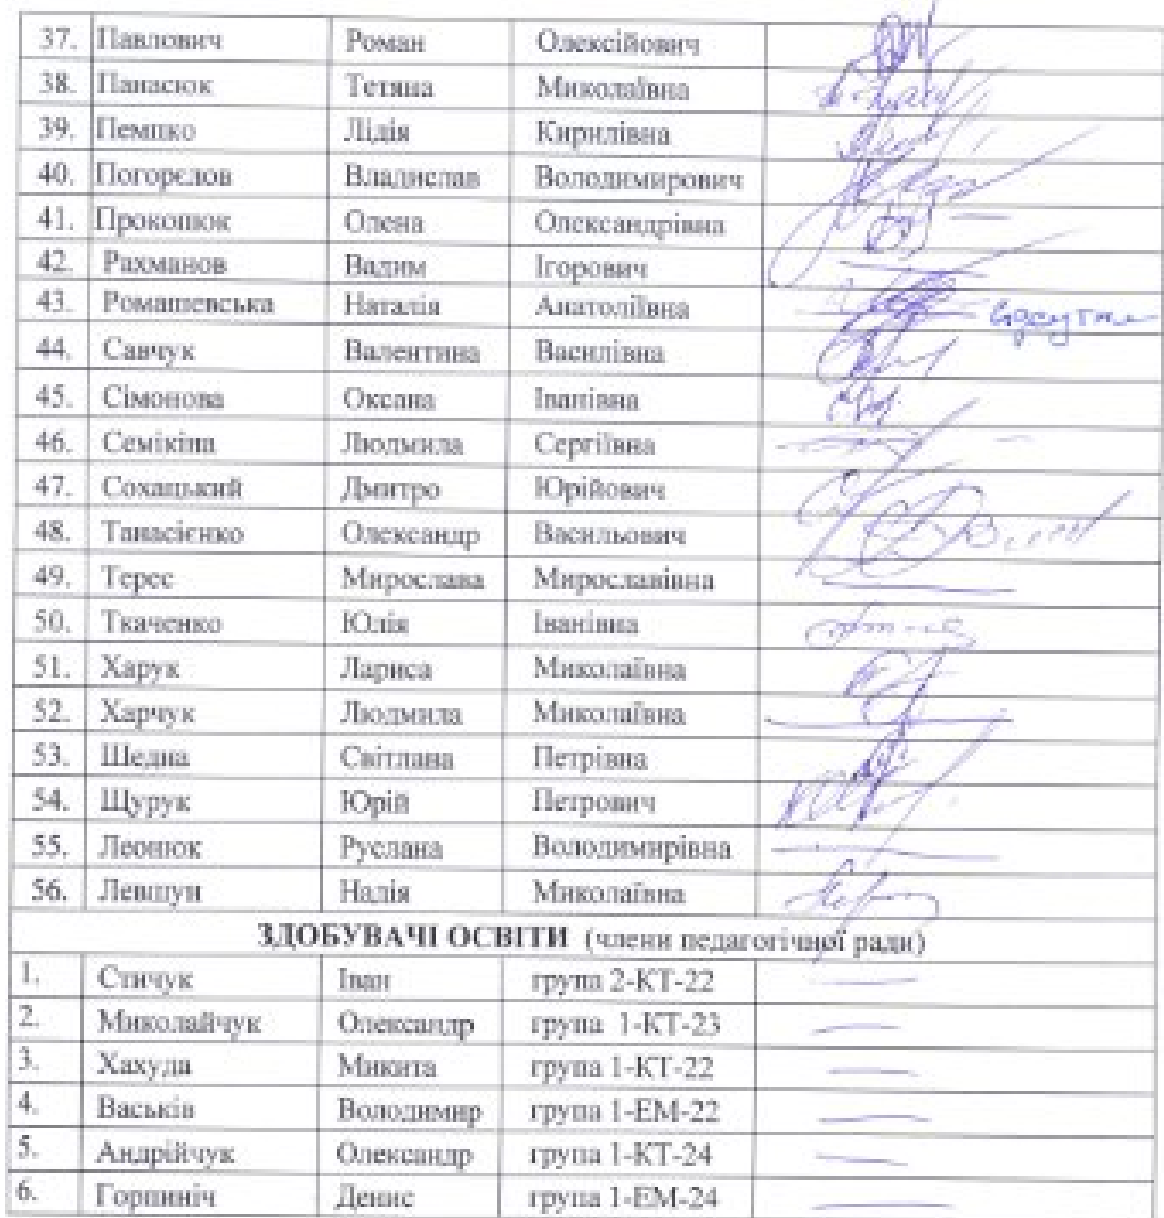 37. Павлович Роман Олексійович
38. Панасюк Тетяна Миколаївна
39. Пемпко Лідія Кирилівна
40. Погорєлов Владислав Володимирович
41. Прокопюк Олена Олександрівна
42. Рахманов Вадим Ігорович
43. Ромашевська Наталія Анатоліївна
44. Савчук Валентина Василівна
45. Сімонова Оксана Іванівна
46. Семікіна Людмила Сергіївна
47. Сохацький Дмитро Юрійович
48. Танасієнко Олександр Васильович
49. Терес Мирослава Мирославівна
50. Ткаченко Юлія Іванівна
51. Харук Лариса Миколаївна
52. Харчук Людмила Миколаївна
53. Шедна Світлана Петрівна
54. Щурук Юрій Петрович
55. Леонюк Руслана Володимирівна
56. Левшун Надія Миколаївна
ЗДОБУВАЧІ ОСВІТИ (члени педагогічної ради)
1. Стичук Іван група 2-КТ-22
2. Миколайчук Олександр група 1-КТ-23
3. Хахуда Микита група 1-КТ-22
4. Васьків Володимир група 1-ЕМ-22
5. Андрійчук Олександр група 1-КТ-24
6. Горпиніч Денис група 1-ЕМ-24